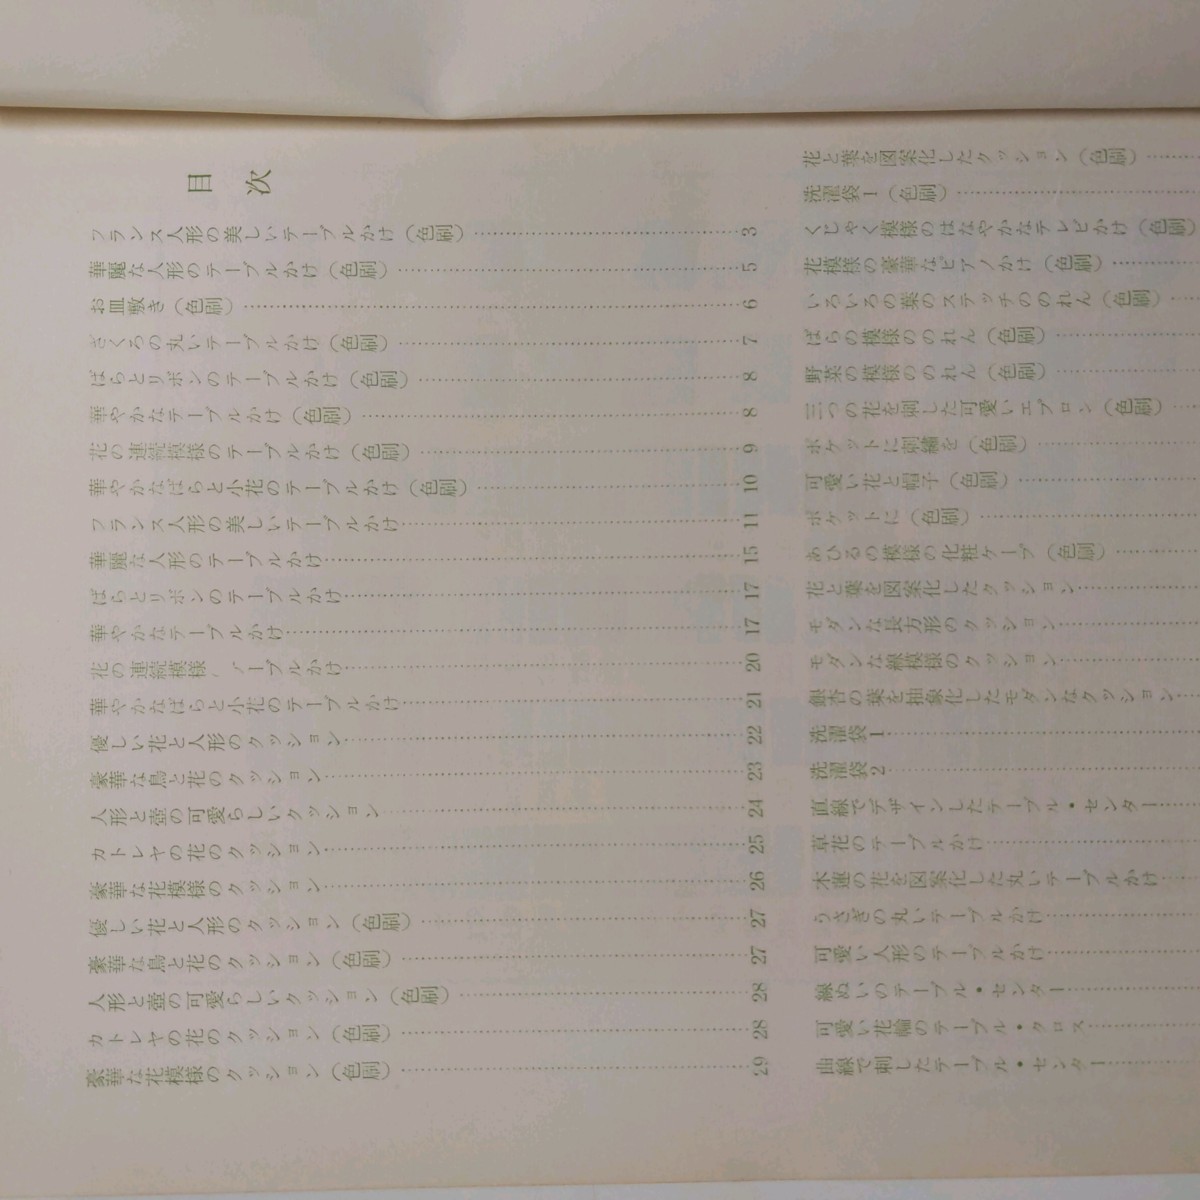 目次
フランス人形の美しいテーブルかけ（色刷）……3
華麗な人形のテーブルかけ（色刷）……5
お皿敷き（色刷）……6
ざくろの丸いテーブルかけ（色刷）……7
ばらとリボンのテーブルかけ（色刷）……8
華やかなテーブルかけ（色刷）……8
花の連続模様のテーブルかけ（色刷）……9
華やかなばらと小花のテーブルかけ（色刷）……10
フランス人形の美しいテーブルかけ……11
華麗な人形のテーブルかけ……15
ばらとリボンのテーブルかけ……17
華やかなテーブルかけ……17
花の連続模様 ーブルかけ……20
華やかなばらと小花のテーブルかけ……21
優しい花と人形のクッション……22
豪華な鳥と花のクッション……23
人形と壺の可愛らしいクッション……24
カトレヤの花のクッション……25
豪華な花模様のクッション……26
優しい花と人形のクッション（色刷）……27
豪華な鳥と花のクッション（色刷）……27
人形と壺の可愛らしいクッション（色刷）……28
カトレヤの花のクッション（色刷）……28
豪華な花模様のクッション（色刷）……29
花と葉を図案化したクッション（色刷）……
洗濯袋1（色刷）……
くじゃく模様のはなやかなテレビかけ（色刷）
花模様の豪華なピアノかけ（色刷）……
いろいろの葉のステッチののれん（色刷）……
ばらの模様ののれん（色刷）……
野菜の模様ののれん（色刷）……
三つの花を刺した可愛いエプロン（色刷）……
ポケットに刺繡を（色刷）……
可愛い花と帽子（色刷）……
ポケットに（色刷）……
あひるの模様の化粧ケープ（色刷）……
花と葉を図案化したクッション……
モダンな長方形のクッション……
モダンな線模様のクッション……
銀杏の葉を抽象化したモダンなクッション……
洗濯袋1……
洗濯袋2……
直線でデザインしたテーブル・センター……
草花のテーブルかけ……
木蓮の花を図案化した丸いテーブルかけ……
うさぎの丸いテーブルかけ……
可愛い人形のテーブルかけ……
線ぬいのテーブル・センター……
可愛い花輪のテーブル・クロス……
曲線で刺したテーブル・センター……